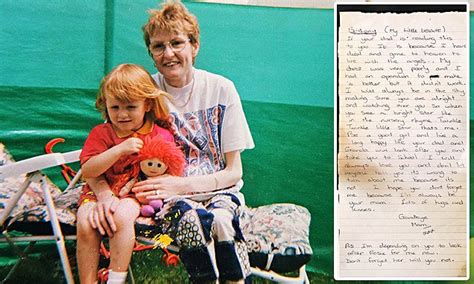 (My little treasure)
If your dad is reading this
to you. It is because I have
died and gone to heaven to
live with the angels. My
chest was very poorly and I
had an operation to make
it better but it didn't work.
I will always be in the sky
making sure you are alright
and watching over you so when
you see a bright star like
in the nursery rhyme Twinkle
Twinkle little star thats me.
Be a good girl and have a
long happy life your dad and
Grandma will look after you and
take you to school I will
always love you and don't let
anyone tell you it's wrong to
talk about me because its
not. I hope you dont forget
me because I'm your
mum. lots of hugs and
kisses.
Goodbye
Mum
As I'm depending on you to look
after Rosie for me now.
Dont forget her will you not.